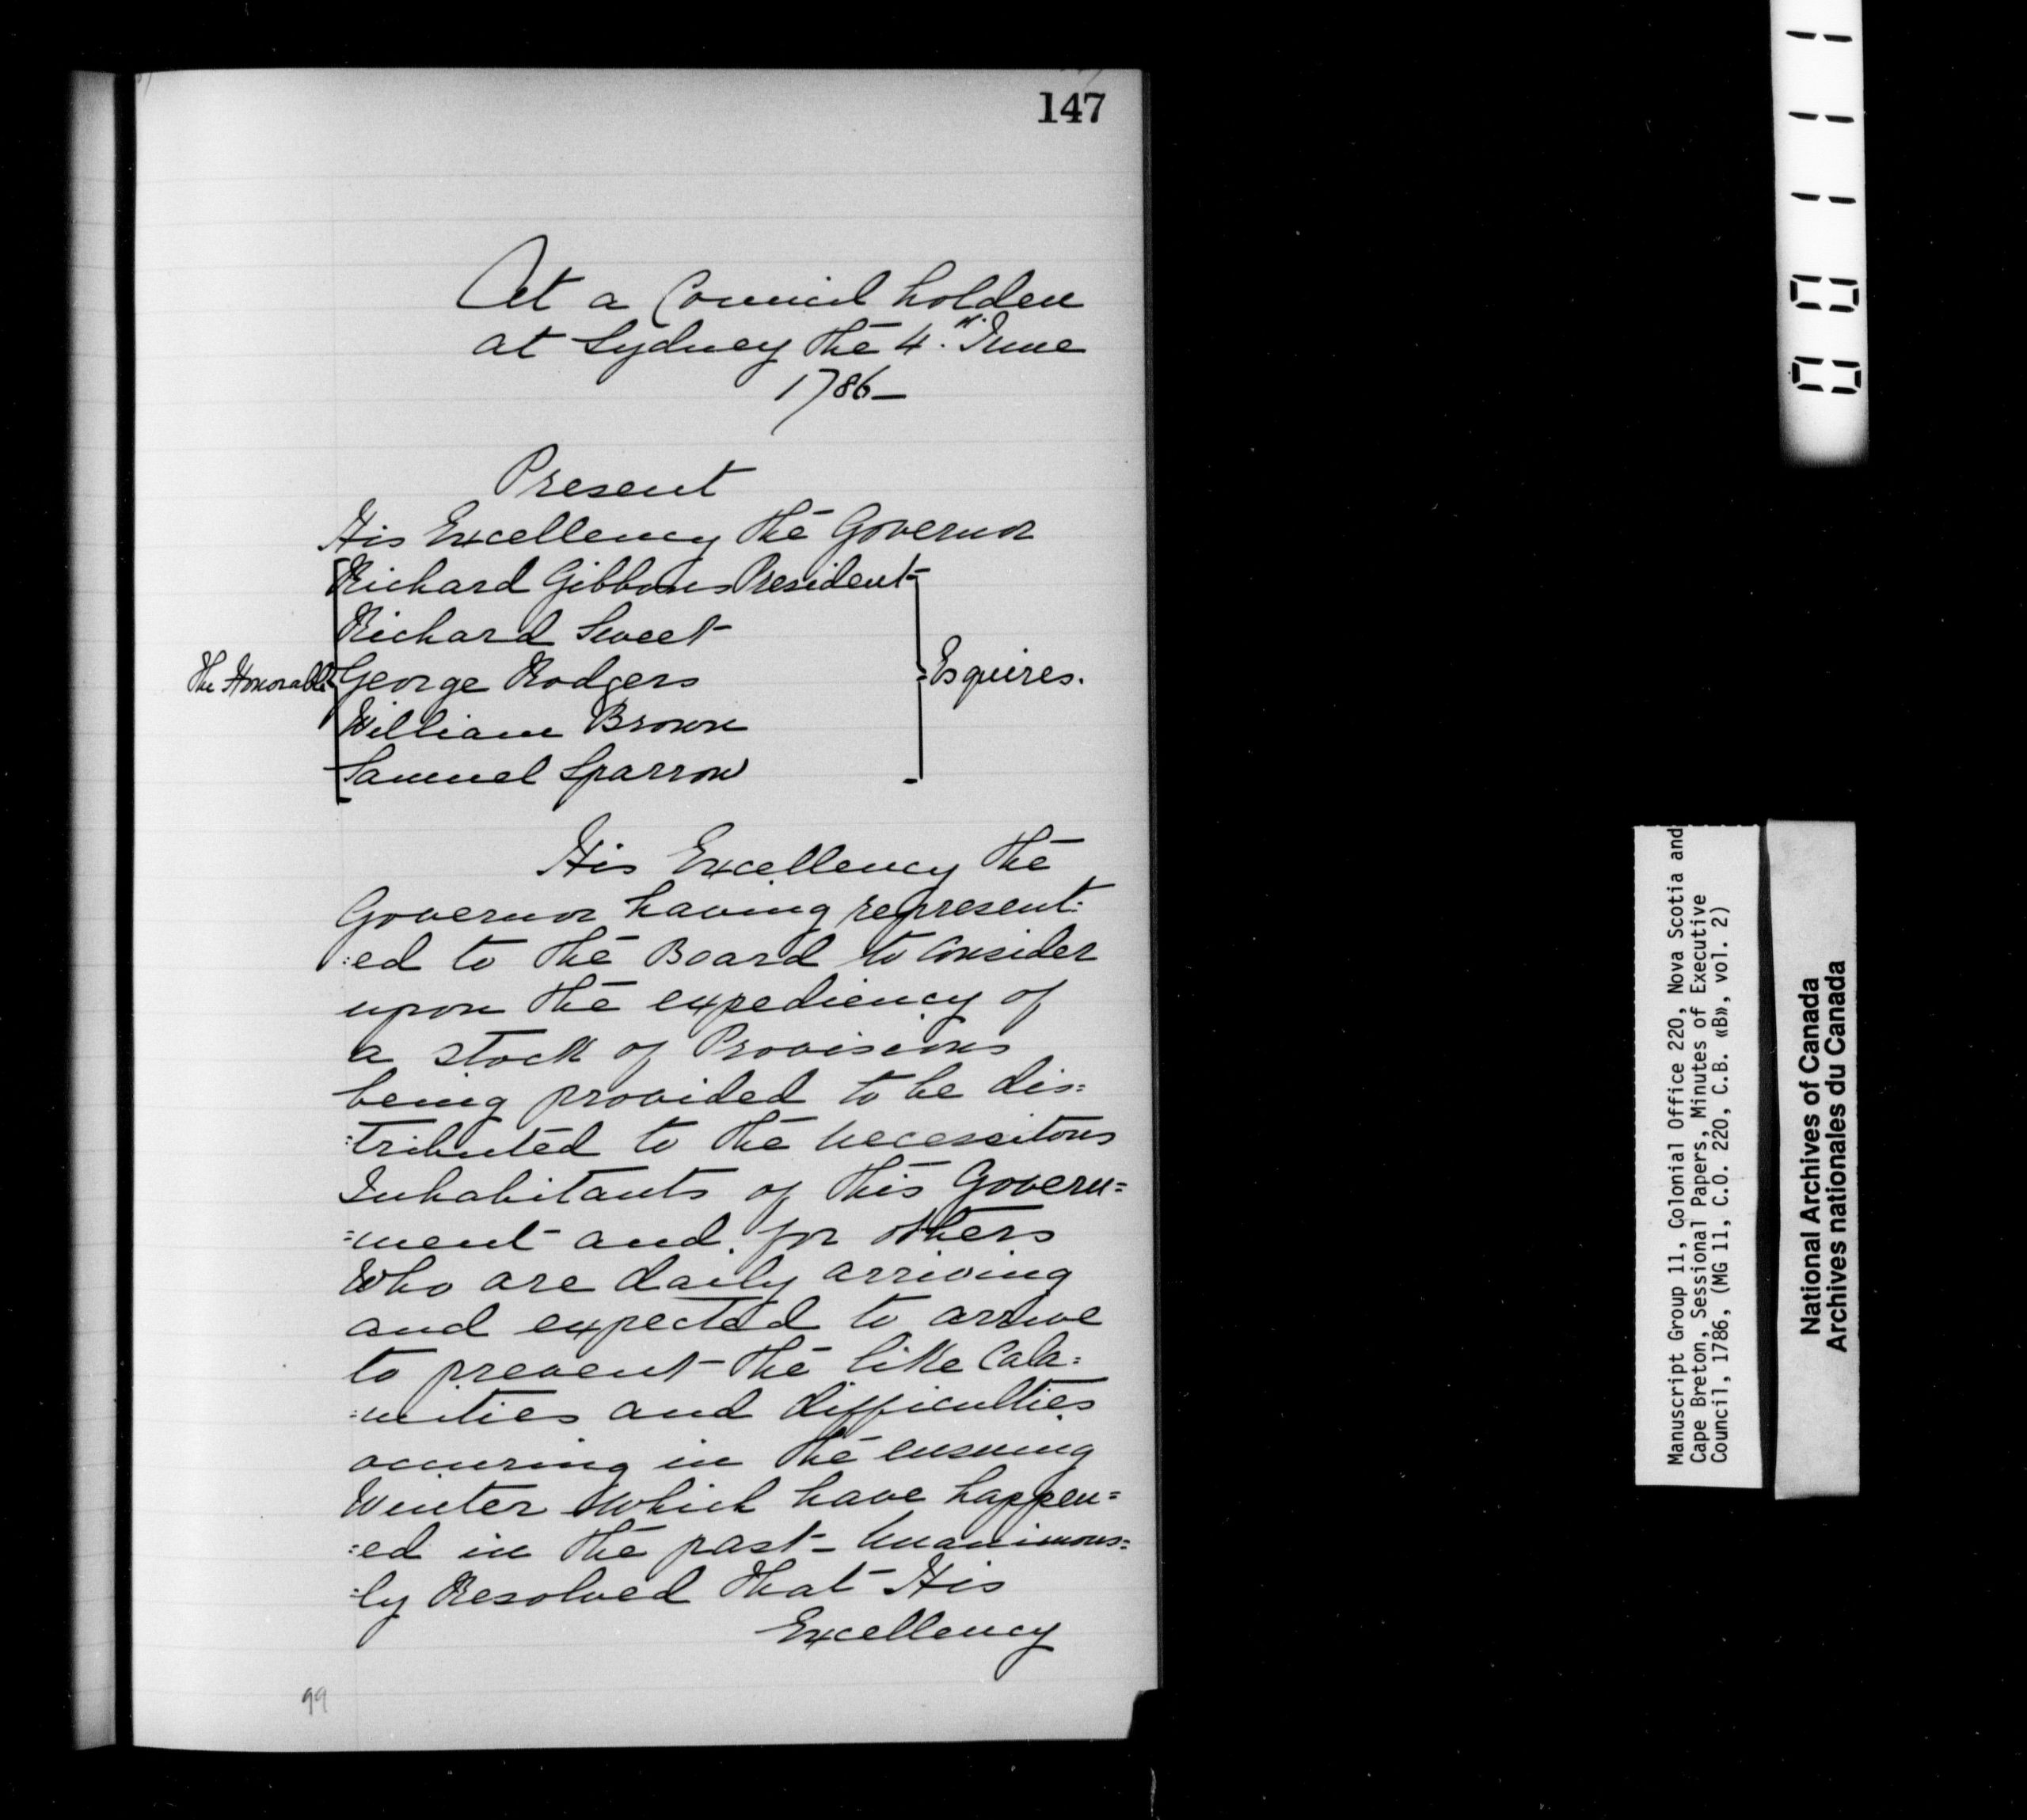 147
At a Council holden
at Sydney the 4th. June
1786—
Present
His Excellency the Governor
Richard Gibbons President
Richard Sweet
The Honorable George Rodgers Esquires.
William Brown
Samuel Sparrow
His Excellency the
Governor having represent:
:ed to the Board to consider
upon the expediency of
a stock of Provisions
being provided to be dis:
:tributed to the necessitous
Inhabitants of this Govern=
=ment and for others
Who are daily arriving
and expected to arrive
to prevent the like Cala:
:mities and difficulties
occuring in the ensuing
Winter which have happen=
:ed in the past – Unanimous=
:ly Resolved that His
Excellency
99
Manuscript Group 11, Colonial Office 220, Nova Scotia and
Cape Breton, Sessional Papers, Minutes of Executive
Council, 1786, (MG 11, C.O. 220, C.B. «B», vol. 2)
National Archives of Canada
Archives nationales du Canada